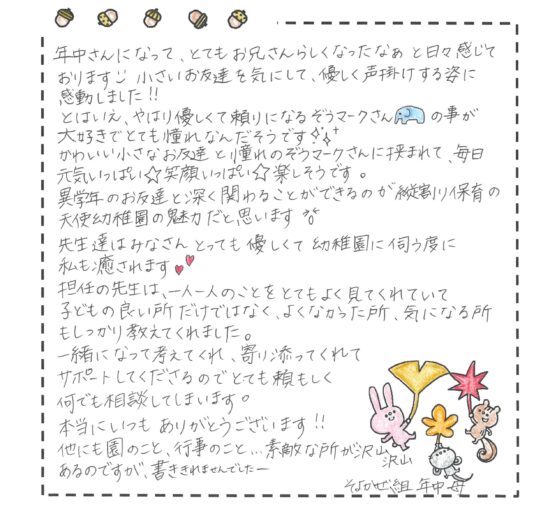 年中さんになって、とてもお兄さんらしくなったなぁと日々感じて
おります 小さいお友達を気にして、優しく声掛けする姿に
感動しました!!
とはいえ、やはり優しくて頼りになるぞうマークさん の事が
大好きでとても憧れなんだそうです
かわいい小さなお友達と憧れのぞうマークさんに挟まれて、毎日
元気いっぱい☆笑顔いっぱい☆楽しそうです。
異学年のお友達と深く関わることができるのが縦割り保育の
天使幼稚園の魅力だと思います
先生達はみなさんとっても優しくて幼稚園に伺う度に
私も癒されます
担任の先生は、一人一人のことをとてもよく見てくれていて
子どもの良い所だけではなく、よくなかった所、気になる所
もしっかり教えてくれました。
一緒になって考えてくれ、寄り添ってくれて
サポートしてくださるのでとても頼もしく
何でも相談してしまいます。
本当にいつもありがとうございます!!
他にも園のこと、行事のこと…素敵な所が沢山
沢山
あるのですが、書ききれませんでしたー
そよかぜ組 年中 母